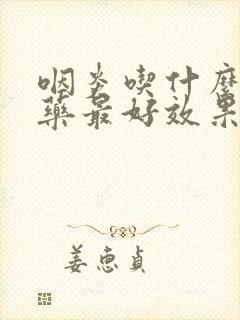 咽炎喫什麽
藥最好效果
姜惠貞